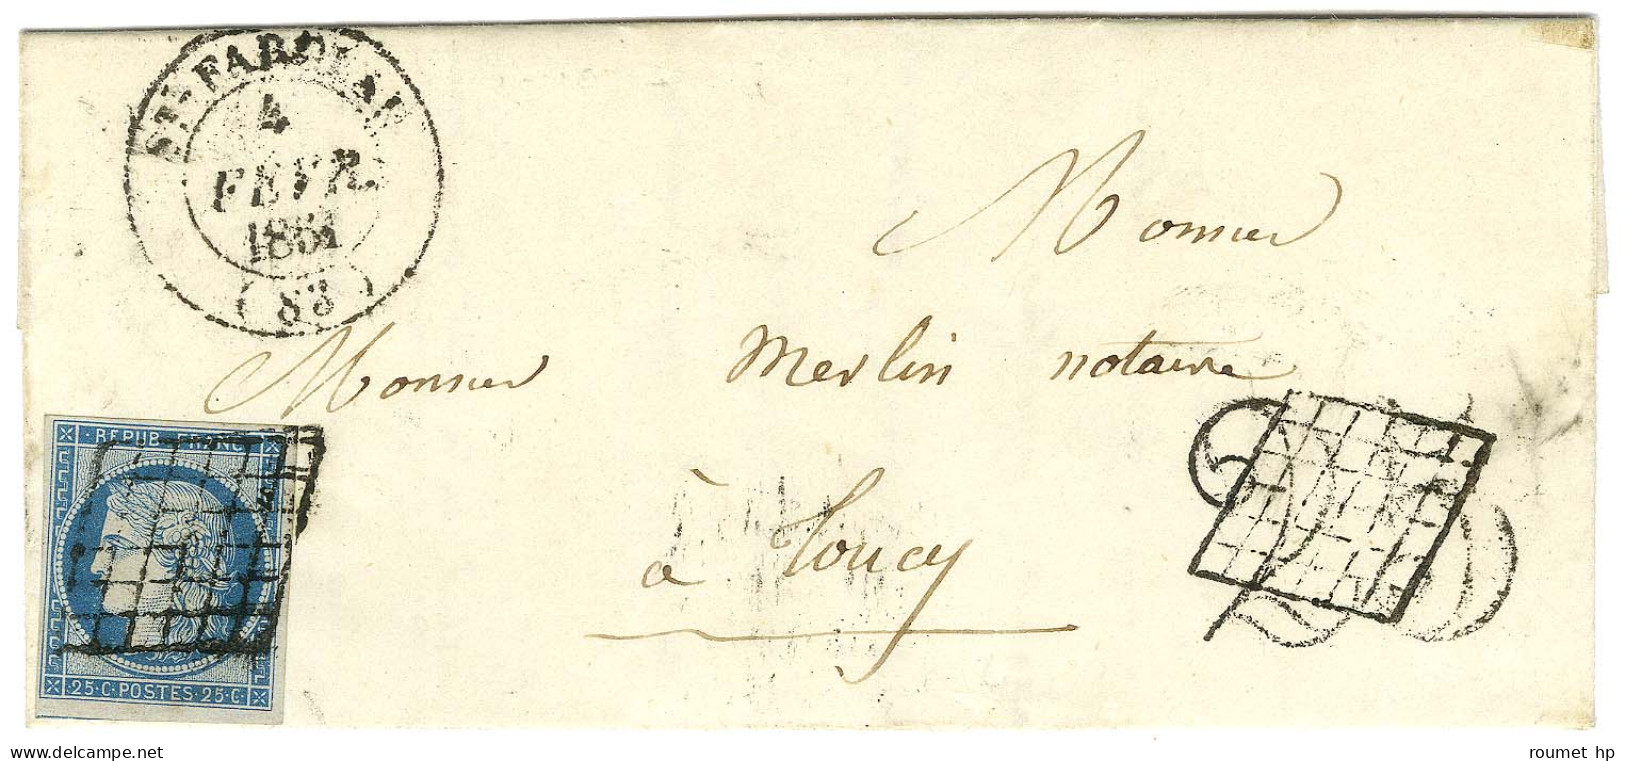 ST-FARGEAU
4
FEVR.
1851
(83)
Monsieur
Monsieur Merlin notaire
à Toucy
REPUB. FRANC.
25·C·POSTES·25·C.
www.delcampe.net
roumet hp